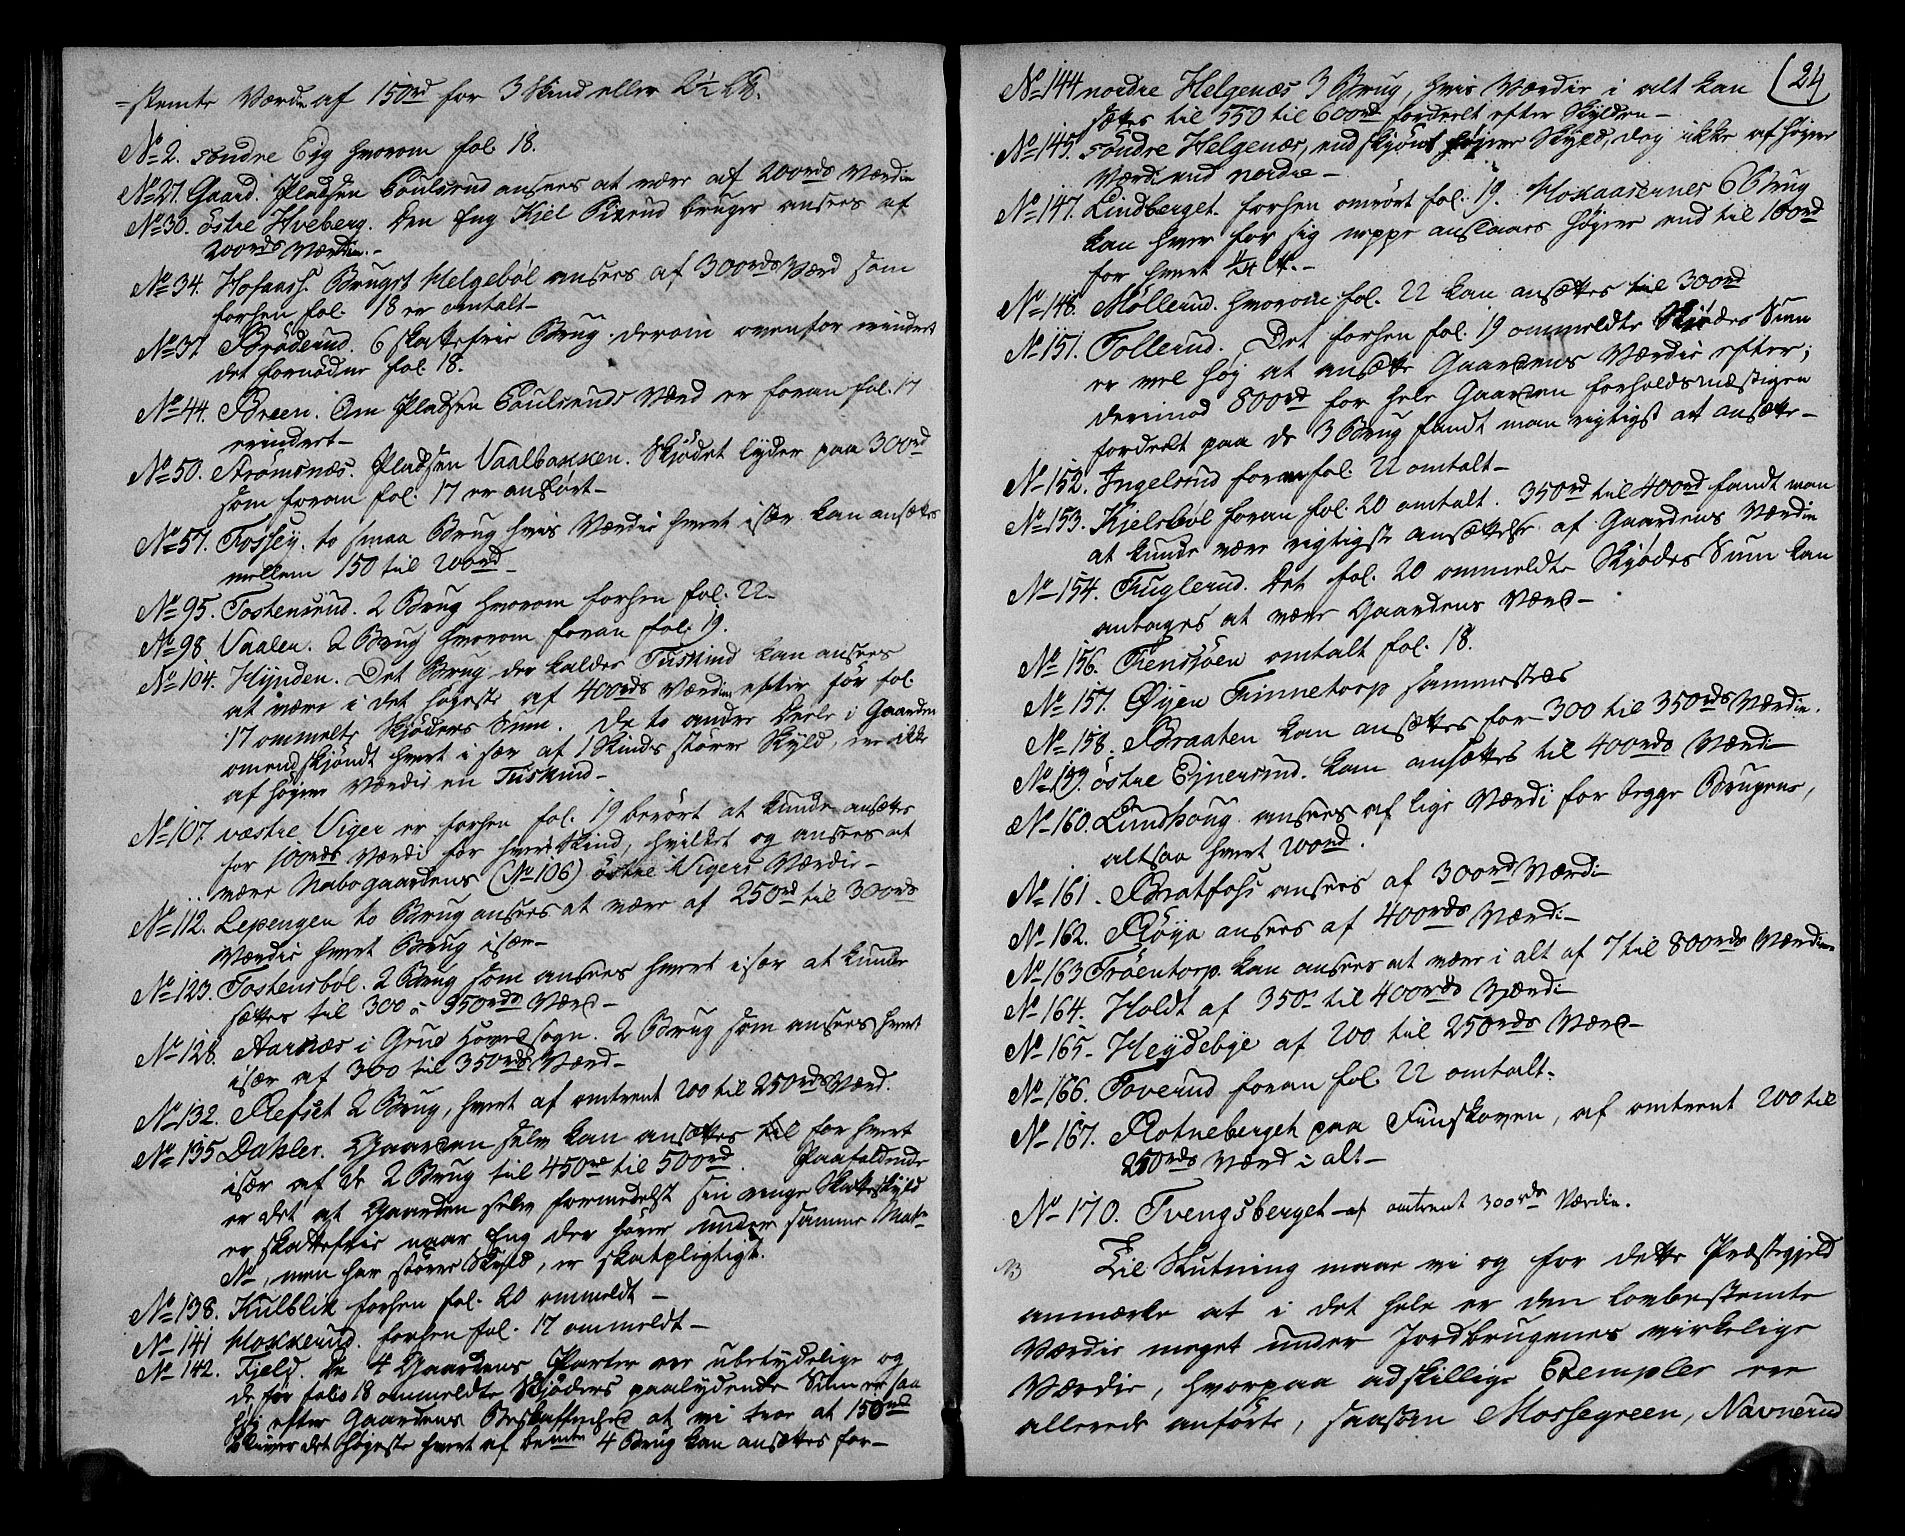 =stemte Værdie af 150rd for 3 Skind eller 2½ L℔.
No 2. søndre Eyg hvorom fol. 18.
No 27. Gaard. Pladsen Poulsrud ansees at være af 200rds Værdie
No 30. østre Hveberg. Den Eng Kjel bruger ansees af
200rds Værdie.-
No 34. Hofaass. Bruget Helgebøl ansees af 300rds Værd som
forhen fol. 18 er omtalt-
No 37. Brøderud. 6 skattefrie Brug. derom ovenfor erindret
det fornødne fol. 18.
No 44. Breen. Om Pladsen Poulsruds Værd er foran fol. 17
erindret-
No 50. Strømsnæs. Pladsen Vaalbakken. Skjødet lyder paa 300rd
som foran fol. 17 er anført-
No 57. Fossey. to smaa Brug hvis Værdie hvert især kan ansættes
mellem 150 til 200rd-
No 95. Tostensrud. 2 Brug hvorom forhen fol. 22-
No 98 Vaalen. 2 Brug hvorom foran fol. 19.
No 104. Hynden. Det Brug der kaldes Tuskind kan ansees
at være i det høyeste af 400rds Værdie efter før fol.
17 ommelte Skjøders Sum. De to andre Deele i Gaarden
omendskjøndt hvert i sær af 1 Skinds større Skyld, ere ikke
af høyere Værdie en Tuskind-
No 107 væstre Viger er forhen fol. 19 berørt at kunde ansættes
for 100rds Værdi for hver Skind, hvilket og ansees at
være Nabogaardens (No 106) østre Vigers Værdie-
No 112. Lepengen to Brug ansees at være af 250rd til 300rds
Værdie hvert Brug især-
No 123. Tostensbøl. 2 Brug som ansees hvert især at kunde
sættes til 300 a 350rds Værd-
No 128. Aarnæs i Grue Hoved sogn. 2 Brug som ansees hvert
især af 300 til 350rds Værd-
No 132. Refset 2 Brug, hvert af omtrent 200 til 250rds Værd.
No 135 Dahler. Gaarden selv kan ansættes til for hvert
især af de 2 Brug til 450rd til 500rd. Paafaldende
er det at Gaarden selv formedelst sin ringe Skatteskyld
er skattefrie naar Eng der hører under samme Matr
No, men har større Skyld, er skatpligtigt.
No 138. Kulblik forhen fol. 20 ommeldt-
No 141 Mokkerud. forhen fol. 17 ommeldt-
No 142. Fjeld. De 4 Gaardens Parter ere ubetydelige og
de før folio 18 ommeldte Skjøders paalydende Sum er saa
høy efter Gaardens Beskaffenhed at vi troe at 150rd
bliver det høyeste hvert af bemte 4 Brug kan ansættes for-
24
No 144 nordre Helgenæs 3 Brug, hvis Værdie i alt kan
sættes til 550 til 600rd fordeelt efter Skylden-
No 145. søndre Helgenæs, endskjønt høyere Skyld, dog ikke af høyere
Værdi end nordre-
No 147. Lindberget. forhen omrørt fol. 19. Mokaasernes 6 Brug
kan hver for sig neppe anslaaes høyere end til 100rd
for hvert
No 148. Møllerud. hvorom fol. 22 kan ansættes til 300rd
No 151. Tollerud. Det forhen fol. 19 ommeldte Skjødes Sum
er vel høy at ansætte Gaardens Værdie efter;
derimod 800rd for hele Gaarden forholdsmæssigen
fordeelt paa de 3 Brug fandt man rigtigst at ansætte-
No 152. Ingelsrud foran fol. 22 omtalt-
No 153. Kjelsbøl foran fol. 20 omtalt. 350rd til 400rd fandt man
at kunde være rigtigste ansættelse af Gaardens Værdie
No 154. Fuglerud. Det fol. 20 ommeldte Skjødes Sum kan
antages at være Gaardens Værd-
No 156. Tenssøen omtalt fol. 18.
No 157. Øyen Finnetorp sammesteds
No 158. Braaten kan ansættes for 300 til 350rds Værdie.
No 159. østre Ejnersrud. kan ansættes til 400rds Værdi-
No 160. Lundhoug. ansees af lige Værdi for begge Brugene,
altsaa hvert 200rd.
No 161. Bratfoss ansees af 300rd Værdi-
No 162. Røya ansees af 400rds Værdi-
No 163 Trøentorp. kan ansees at være i alt af 7 til 800rds Værdie
No 164. Holdt af 350 til 400rds Værdi-
No 165- Heydebye af 200 til 250rds Værd-
No 166. Toverud foran fol. 22 omtalt.
No 167. Rotneberget paa Finskoven, af omtrent 200 til
250rds Værd i alt-
No 170. Tvengsberget af omtrent 300rds Værdie.
Til Slutning maae vi og for dette Præstegjeld
anmærke at i det hele er den lovbestemte
Værdie meget under Jordbrugenes virkelige
Værdie, hvorpaa adskillige Exempler ere
allerede anførte, saasom Mossegreen, Navnerud